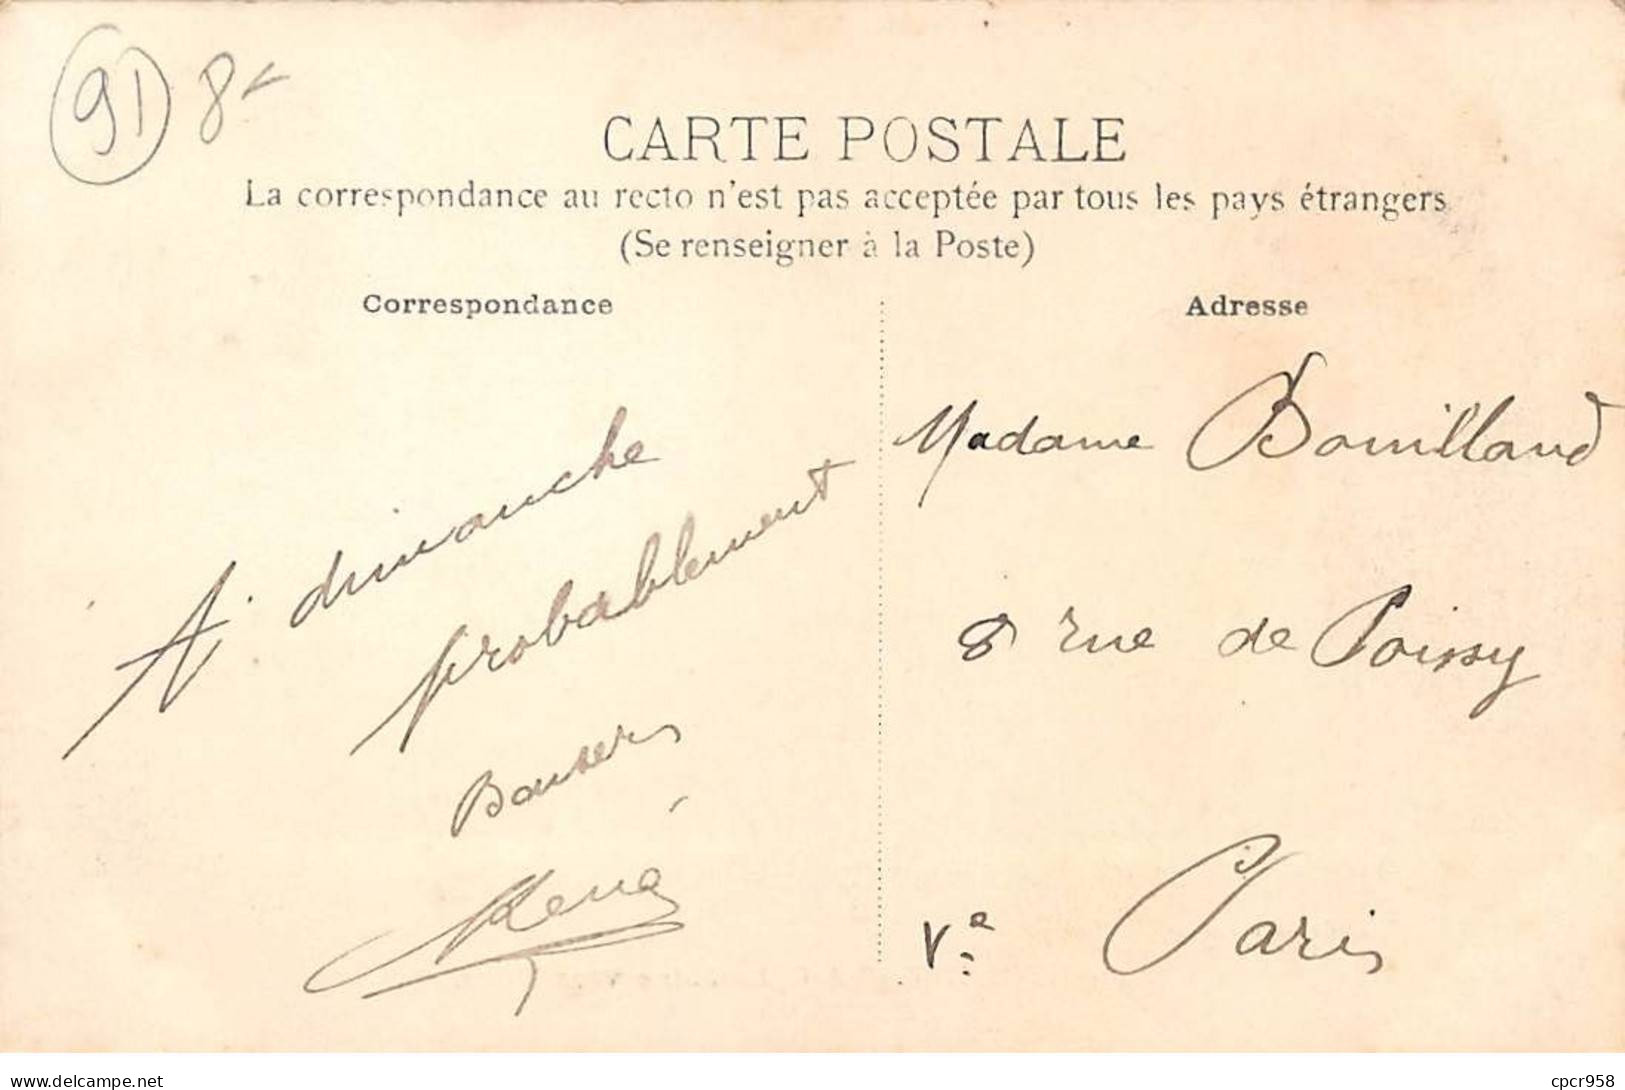 91 8
CARTE POSTALE
La correspondance au recto n'est pas acceptée par tous les pays étrangers
(Se renseigner à la Poste)
Correspondance
A dimanche
probablement
Baisers
René
Adresse
Madame Bouillaud
8 rue de Poissy
Ve Paris
www.delcampe.net
cpcr958